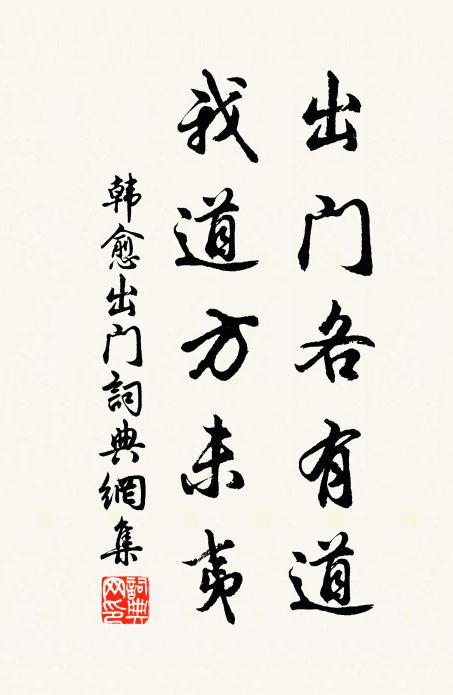 出门各有道
我道方未夷
韩愈出门詞典網集
詞典网印